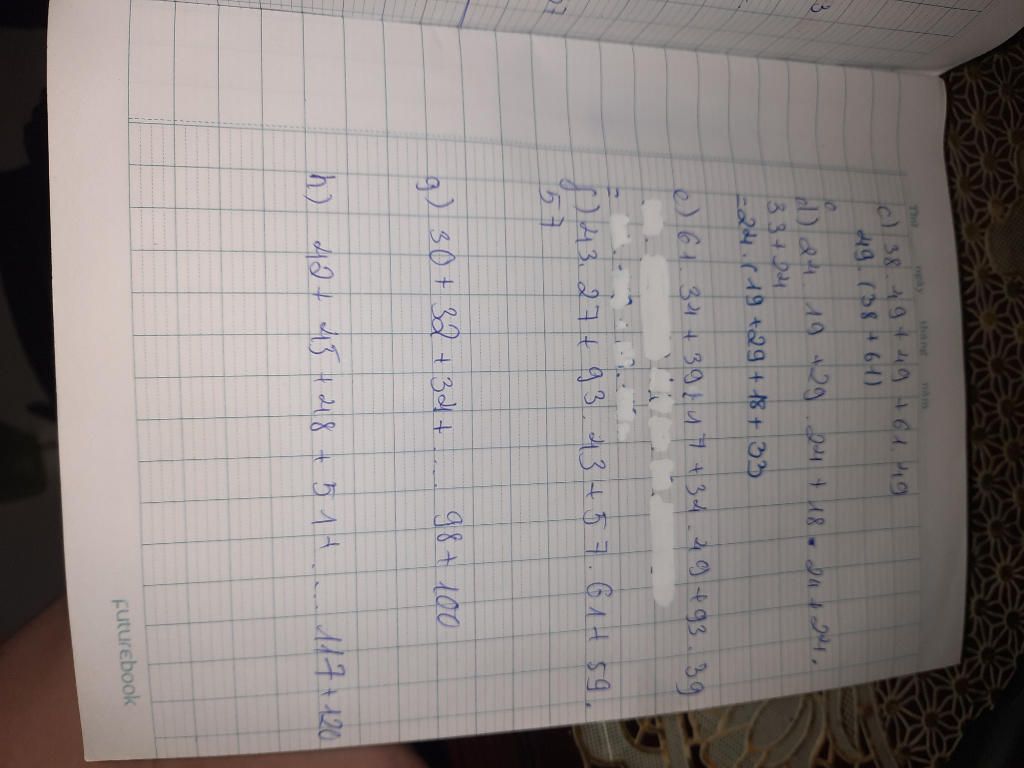 Thứ ngày tháng năm
c) 38 . 49 + 49 + 61 . 49
49 . (38 + 61)
d) 24 . 19 + 29 . 24 + 18 . 24 + 24 .
33 + 24
= 24 . ( 19 + 29 + 18 + 33
e) 61 . 34 + 39 . 17 + 34 . 49 + 93 . 39
=
f) 43 . 27 + 93 . 43 + 57 . 61 + 59 .
57
g) 30 + 32 + 34 + ..... 98 + 100
h) 42 + 45 + 48 + 51 + ..... 117 + 120
Futurebook